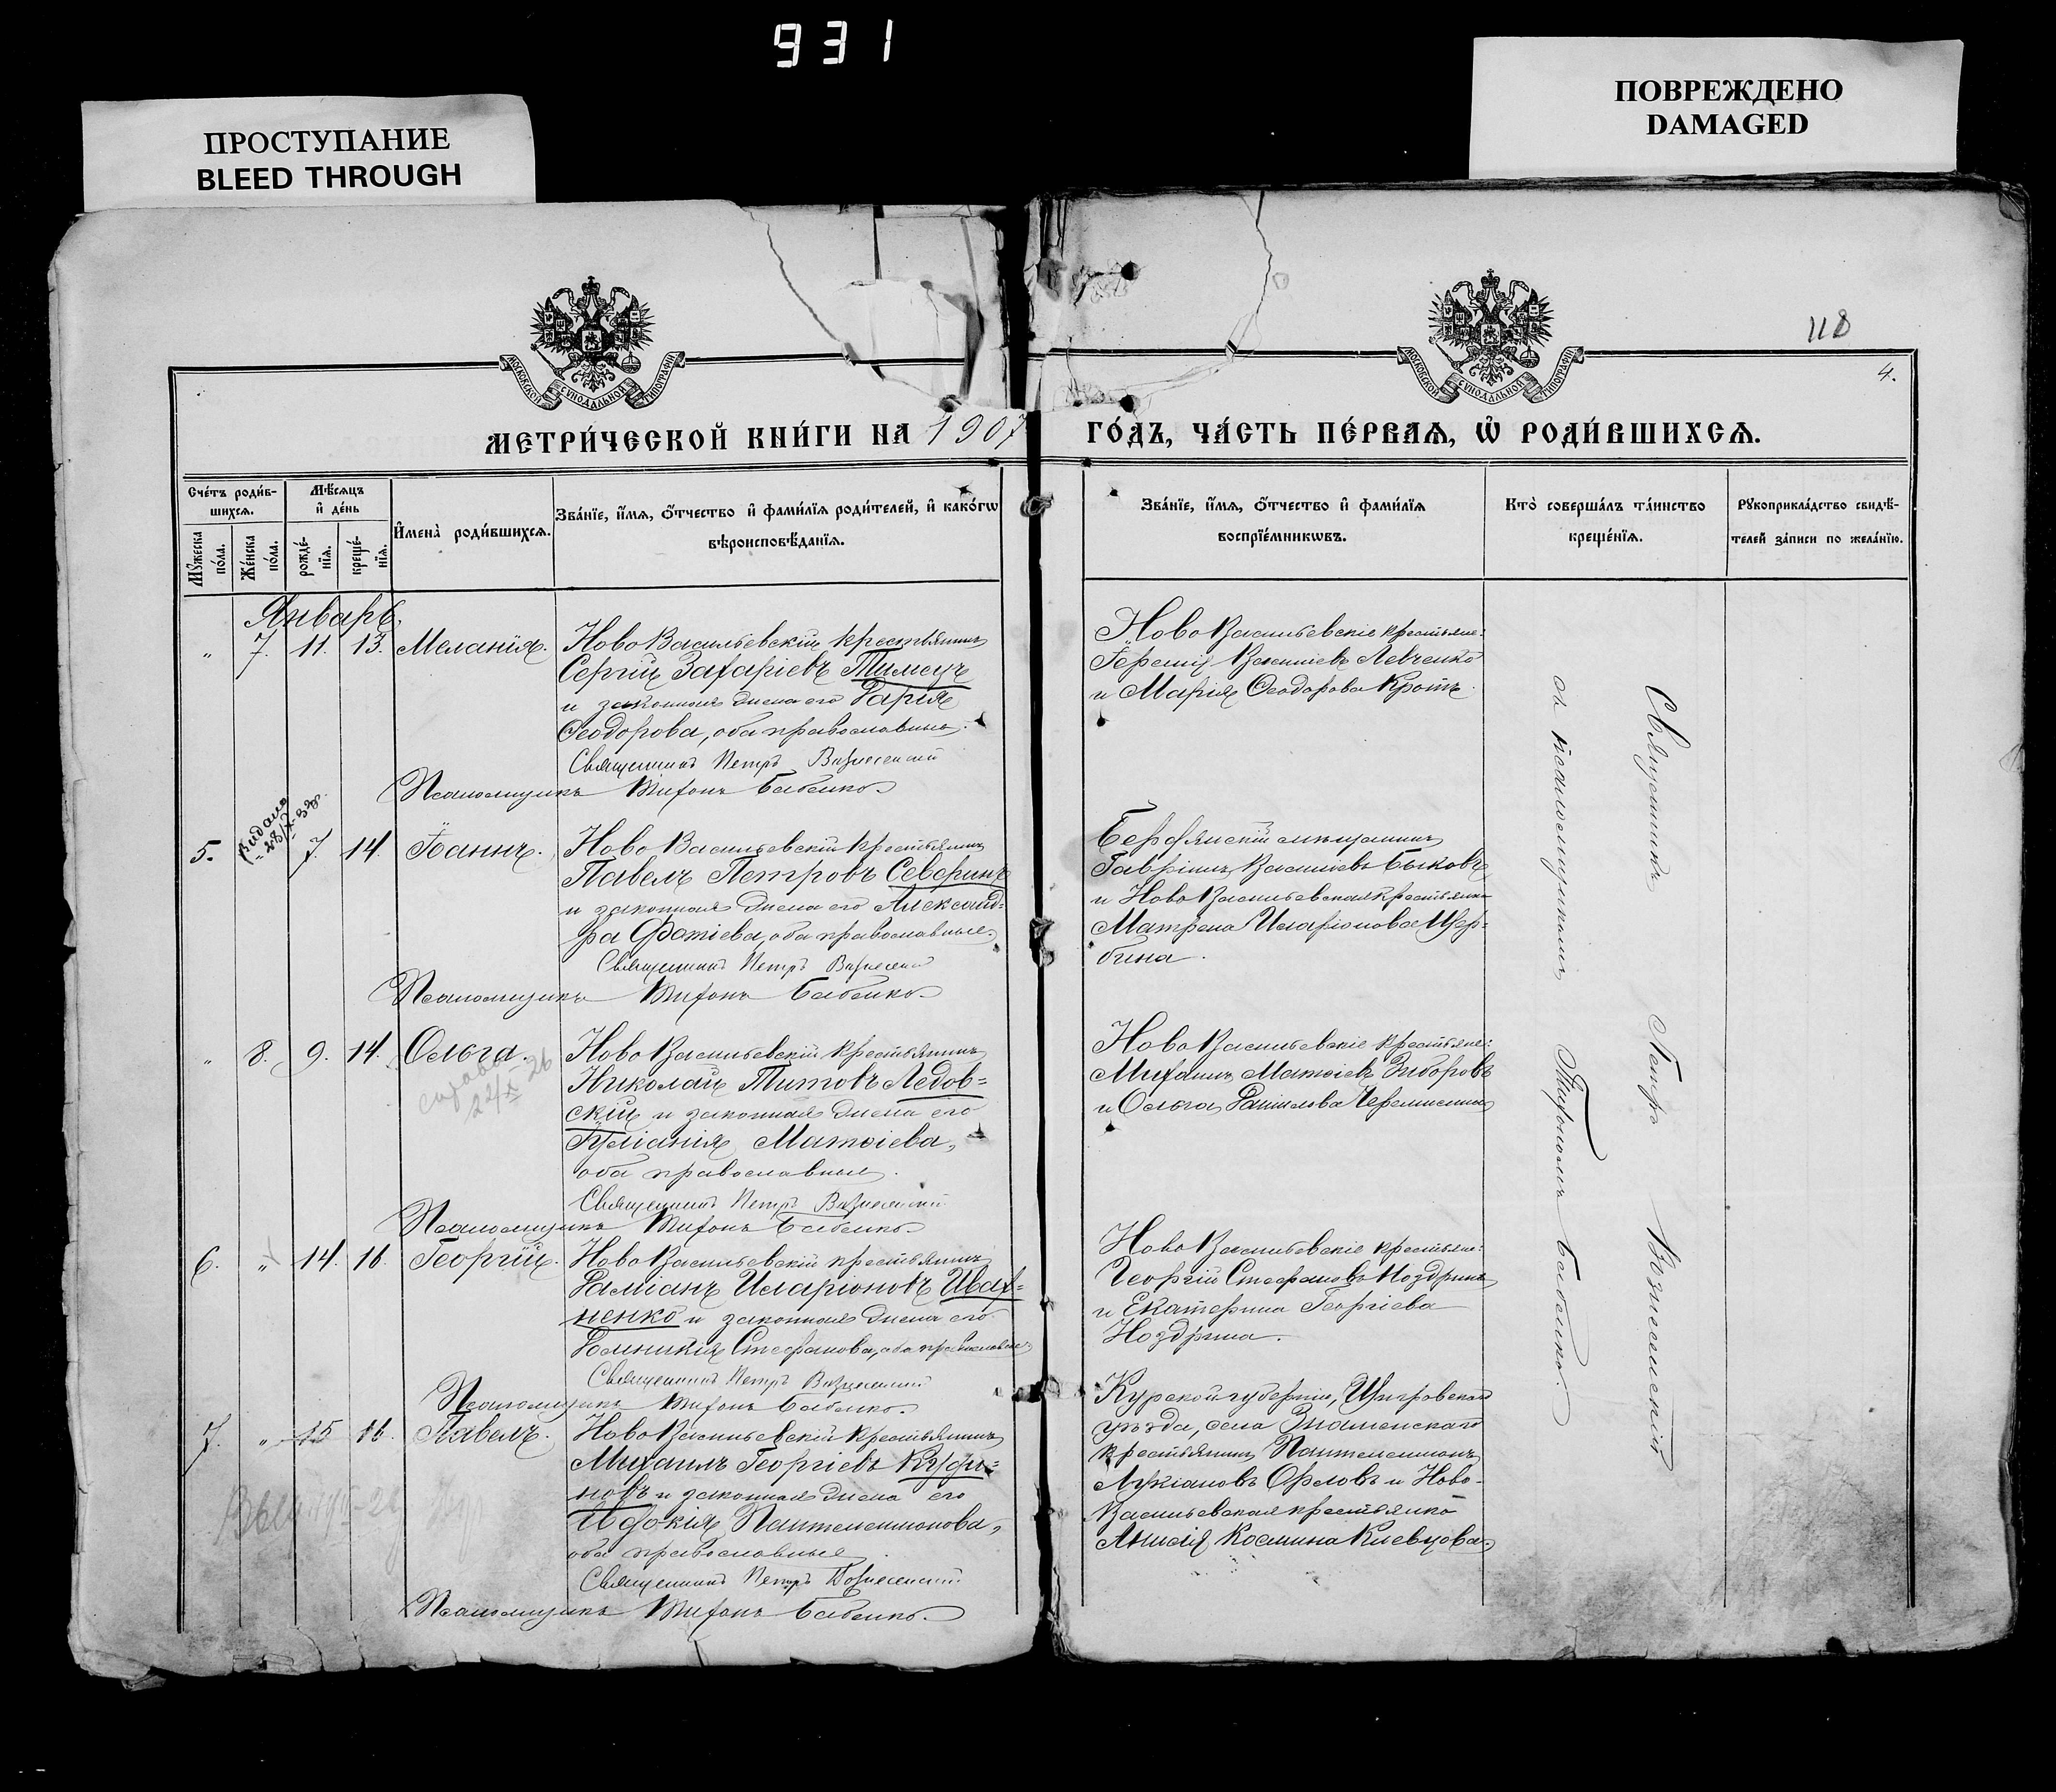 931
ПРОСТУПАНИЕ
BLEED THROUGH
ПОВРЕЖДЕНО
DAMAGED
118
4.
МОСКОВСКОЙ СУНОДАЛЬНОЙ ТИПОГРАФІИ
МОСКОВСКОЙ СУНОДАЛЬНОЙ ТИПОГРАФІИ
МЕТРИ́ЧЕСКОЙ КНИ́ГИ НА 1907
ГО́ДЪ, ЧА́СТЬ ПЕ́РВАѦ, Ѡ҆ РОДИ́ВШИХСѦ.
Сче́тъ роди́в-
шихсѧ.
Мꙋ́жеска по́ла.
Же́нска по́ла.
Мѣ́сѧцъ
и҆ де́нь
рожде́-нїѧ.
креще́-нїѧ.
И҆мена̀ роди́вшихсѧ.
Зва́нїе, и҆́мѧ, ѻ҆́тчество и҆ фами́лїѧ роди́телей, и҆ како́гѡ
вѣроисповѣ́данїѧ.
Зва́нїе, и҆́мѧ, ѻ҆́тчество и҆ фами́лїѧ
воспрїе́мникѡвъ.
Кто̀ соверша́лъ та́инство
креще́нїѧ.
Рꙋкоприкла́дство свидѣ́-
телей за́писи по жела́нїю.
Январь.
" 7. 11. 13. Меланія.
НовоВасильевскій крестьянинъ
Сергій Захаріевъ Тимецъ
и законная жена его Дарія
Ѳеодорова, оба православные.
Священникъ Петръ Вознесенский
Псаломщикъ Тихонъ Бабенко.
НовоВасильевскіе крестьяне:
Василіевъ Левченко
и Марія Ѳеодорова Кротъ.
Видано
5. 7. 14. Іоаннъ.
НовоВасильевскій крестьянинъ
Павелъ Петровъ Северинъ
и законная жена его Александ=
ра Фотіева, оба православные.
Священникъ Петръ Вознесенский
Псаломщикъ Тихонъ Бабенко.
Бердянскій мѣщанинъ
Гавріилъ Василіевъ Быковъ
и НовоВасильевская крестьянка
Матрена Иларіонова Щер=
бина.
" 8. 9. 14. Ольга.
справка
24/X 26
НовоВасильевскій крестьянинъ
Николай Титовъ Ледов=
скій и законная жена его
Іуліанія Матѳіева,
оба православные.
Священникъ Петръ Вознесенский
Псаломщикъ Тихонъ Бабенко.
НовоВасильевскіе крестьяне:
Михаилъ Матѳіевъ Зиборовъ
и Ольга Даніилова
6. " 14. 16. Георгій.
НовоВасильевскій крестьянинъ
Даміанъ Иларіоновъ Ивах=
ненко и законная жена его
Домникія Стефанова, оба православные.
Священникъ Петръ Вознесенский
Псаломщикъ Тихонъ Бабенко.
НовоВасильевскіе крестьяне:
Георгій Стефановъ Ноздринъ
и Екатерина Георгіева
Ноздрина.
7. " 15 16. Павелъ.
НовоВасильевскій крестьянинъ
Михаилъ Георгіевъ Куди=
новъ и законная жена его
Евдокія Пантелеимонова,
оба православные.
Священникъ Петръ Вознесенский
Псаломщикъ Тихонъ Бабенко.
Курской губерніи, Щигровскаго
уѣзда, села Знаменскаго
крестьянинъ Пантелеимонъ
Лукіановъ Орловъ и Ново-
Васильевская крестьянка
Анисія Косьмина Киевцова.
Священникъ Петръ Вознесенский
съ псаломщикомъ Тихономъ Бабенко.